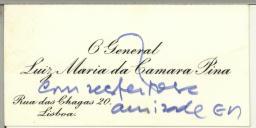 O General
Luiz Maria da Camara Pina
com respeitosa
Rua das Chagas 20.
amizade
Lisboa.